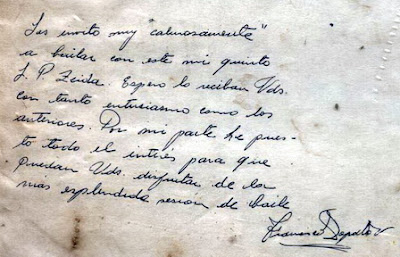 Les invito muy calurosamente"
a bailar con este mi quinto
L. P. Zeida. Espero lo reciban Vds.
con tanto entusiasmo como los
anteriores. Por mi parte he pues-
to todo el interés para que
puedan Vds. disfrutar de la
mas esplendida sesión de baile
Francisco